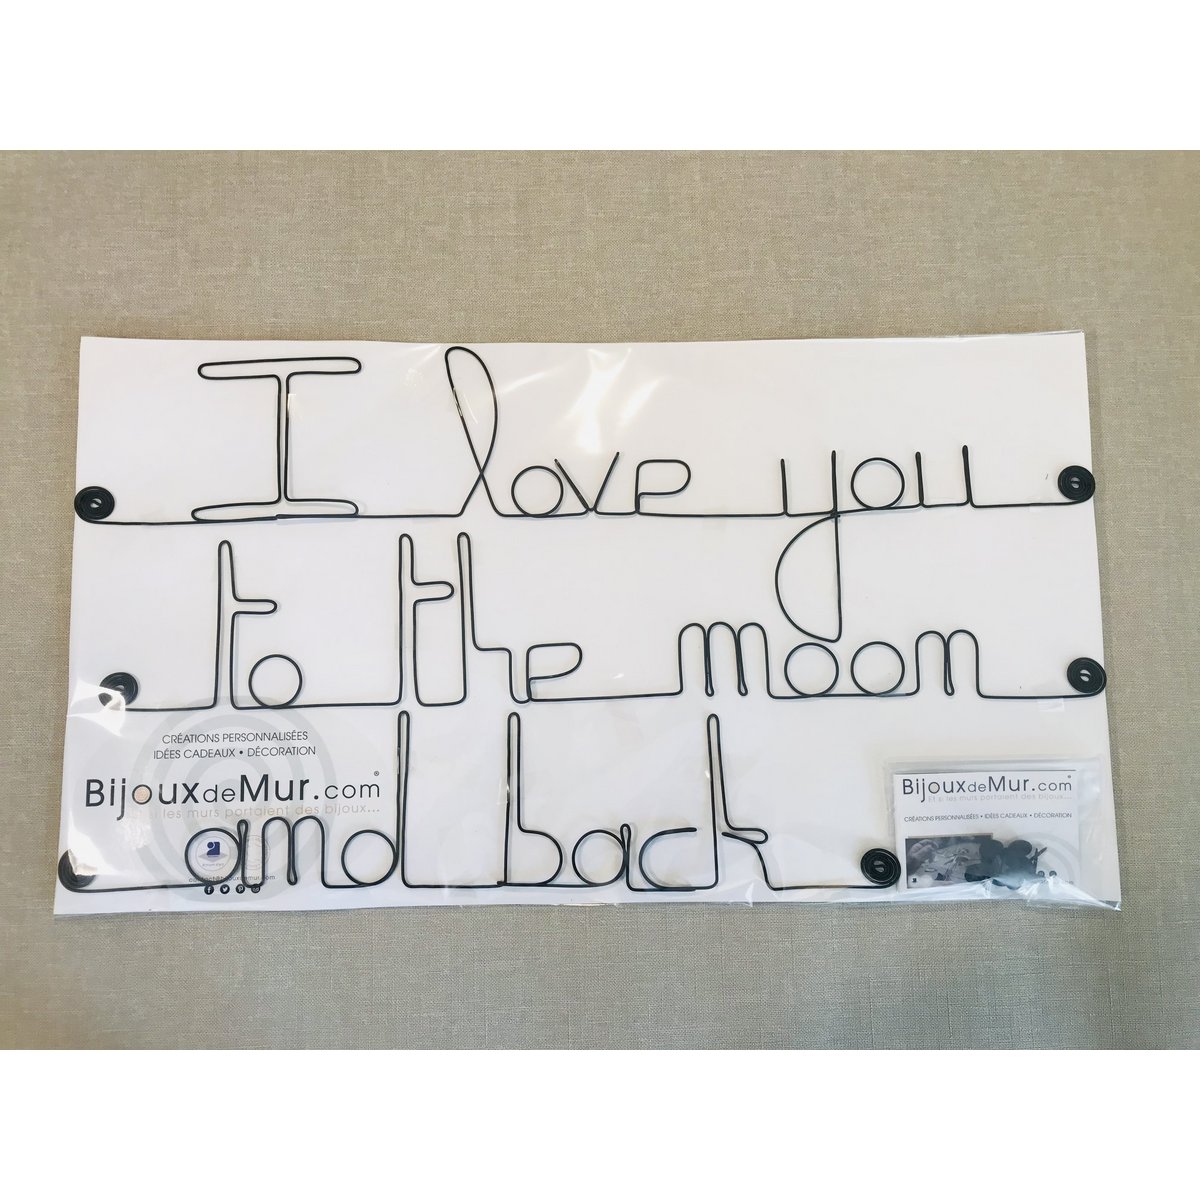 I love you
to the moon
and back
CRÉATIONS PERSONNALISÉES
IDÉES CADEAUX • DÉCORATION
BijouxdeMur.com®
Et si les murs portaient des bijoux...
contact@bijouxdemur.com
BijouxdeMur.com®
Et si les murs portaient des bijoux...
CRÉATIONS PERSONNALISÉES • IDÉES CADEAUX • DÉCORATION